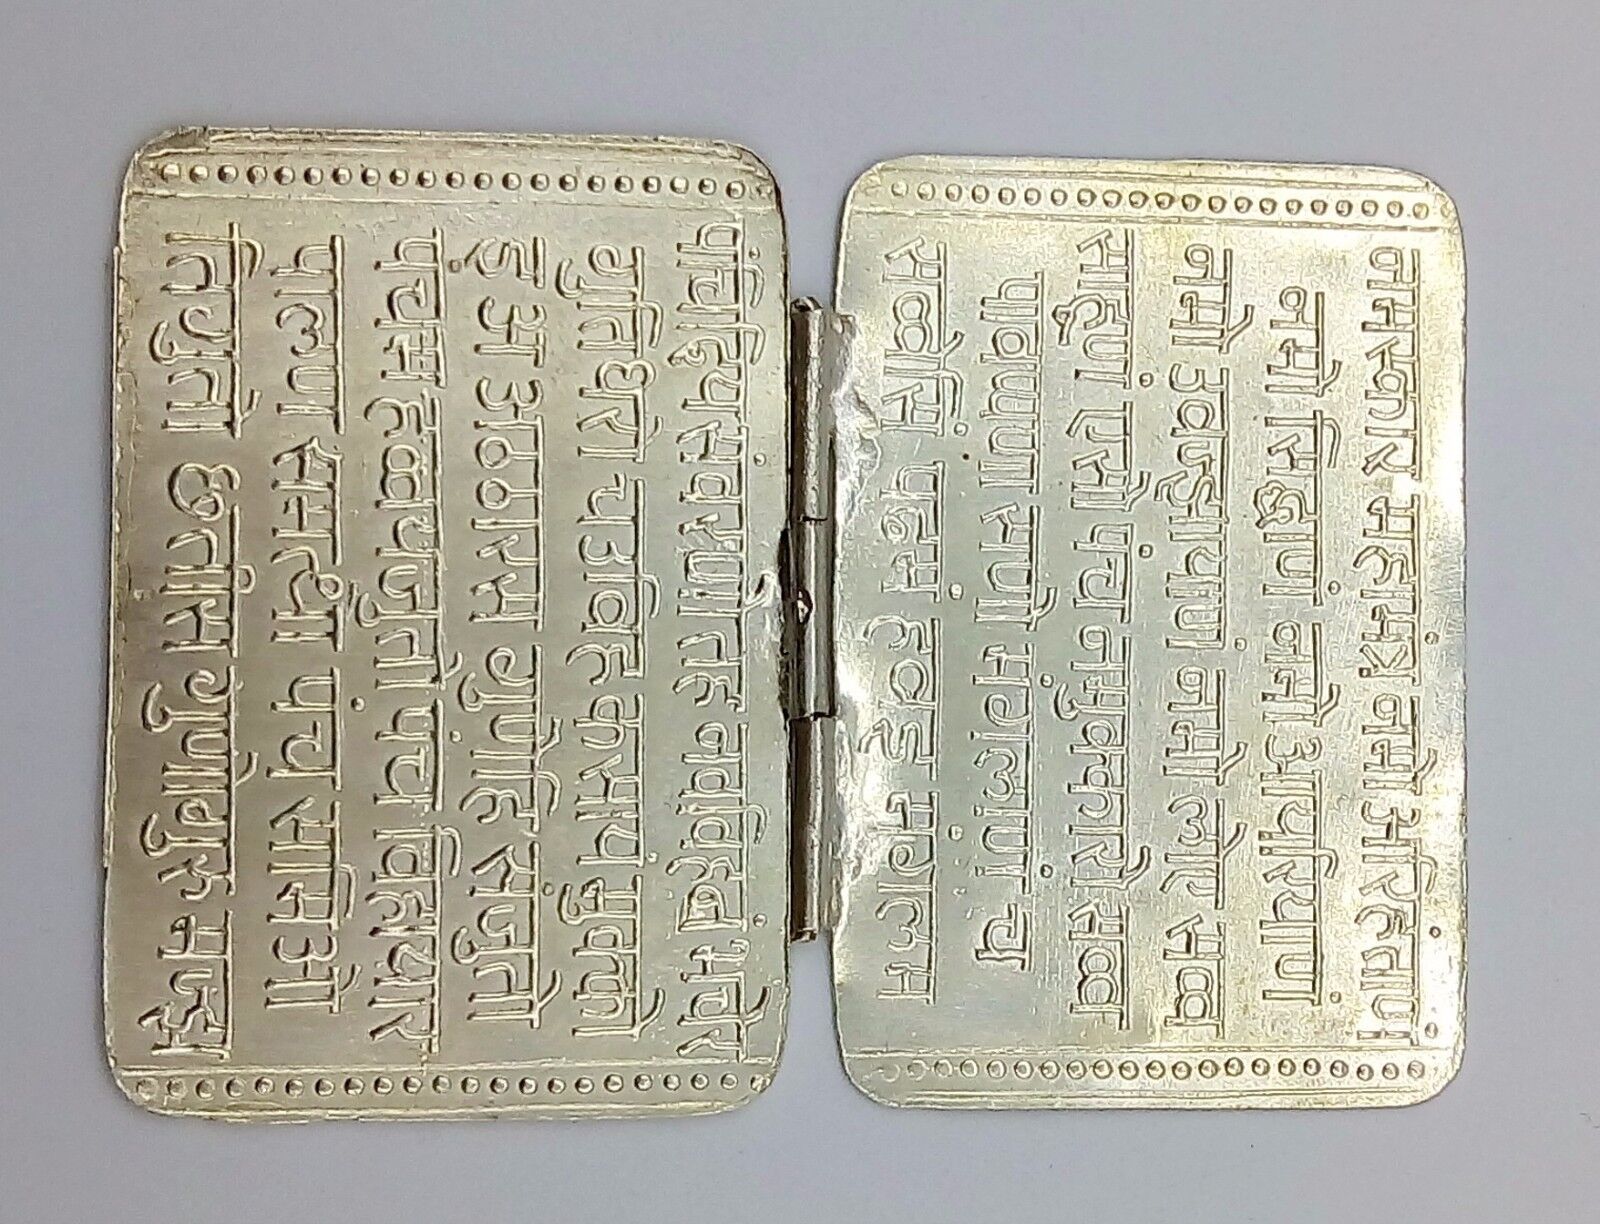 नमस्कार महामंत्र नमो अरिहंताणं
नमो सिद्धाणं नमो आयरियाणं
नमो उवज्झायाणं नमो लोए सव्व
साहूणं एसो पंच नमुक्कारो सव्व
पावप्पणासणो मंगलाणं च
सव्वेसिं पढमं हवइ मंगलम
पंचिंदियसंवरणो तह नवविहबंभचेर
गुत्तिधरो चउविहकसायमुक्को
इअ अठारस गुणेहिं संजुतो
पंचमहव्वयजुतो पंच विहायार
पालण समत्थो पंच समिओ
तिगुतो छतीस गुणोगुरु मज्झ